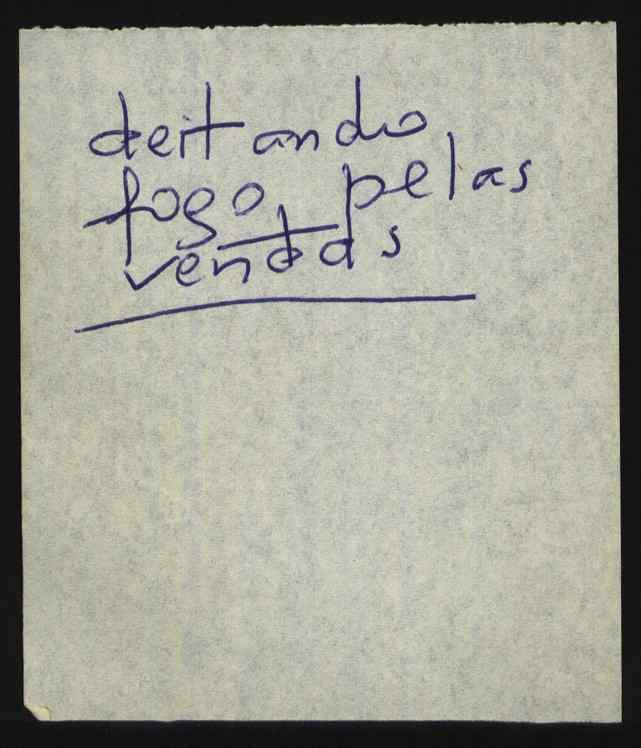 deitando
fogo pelas
ventas